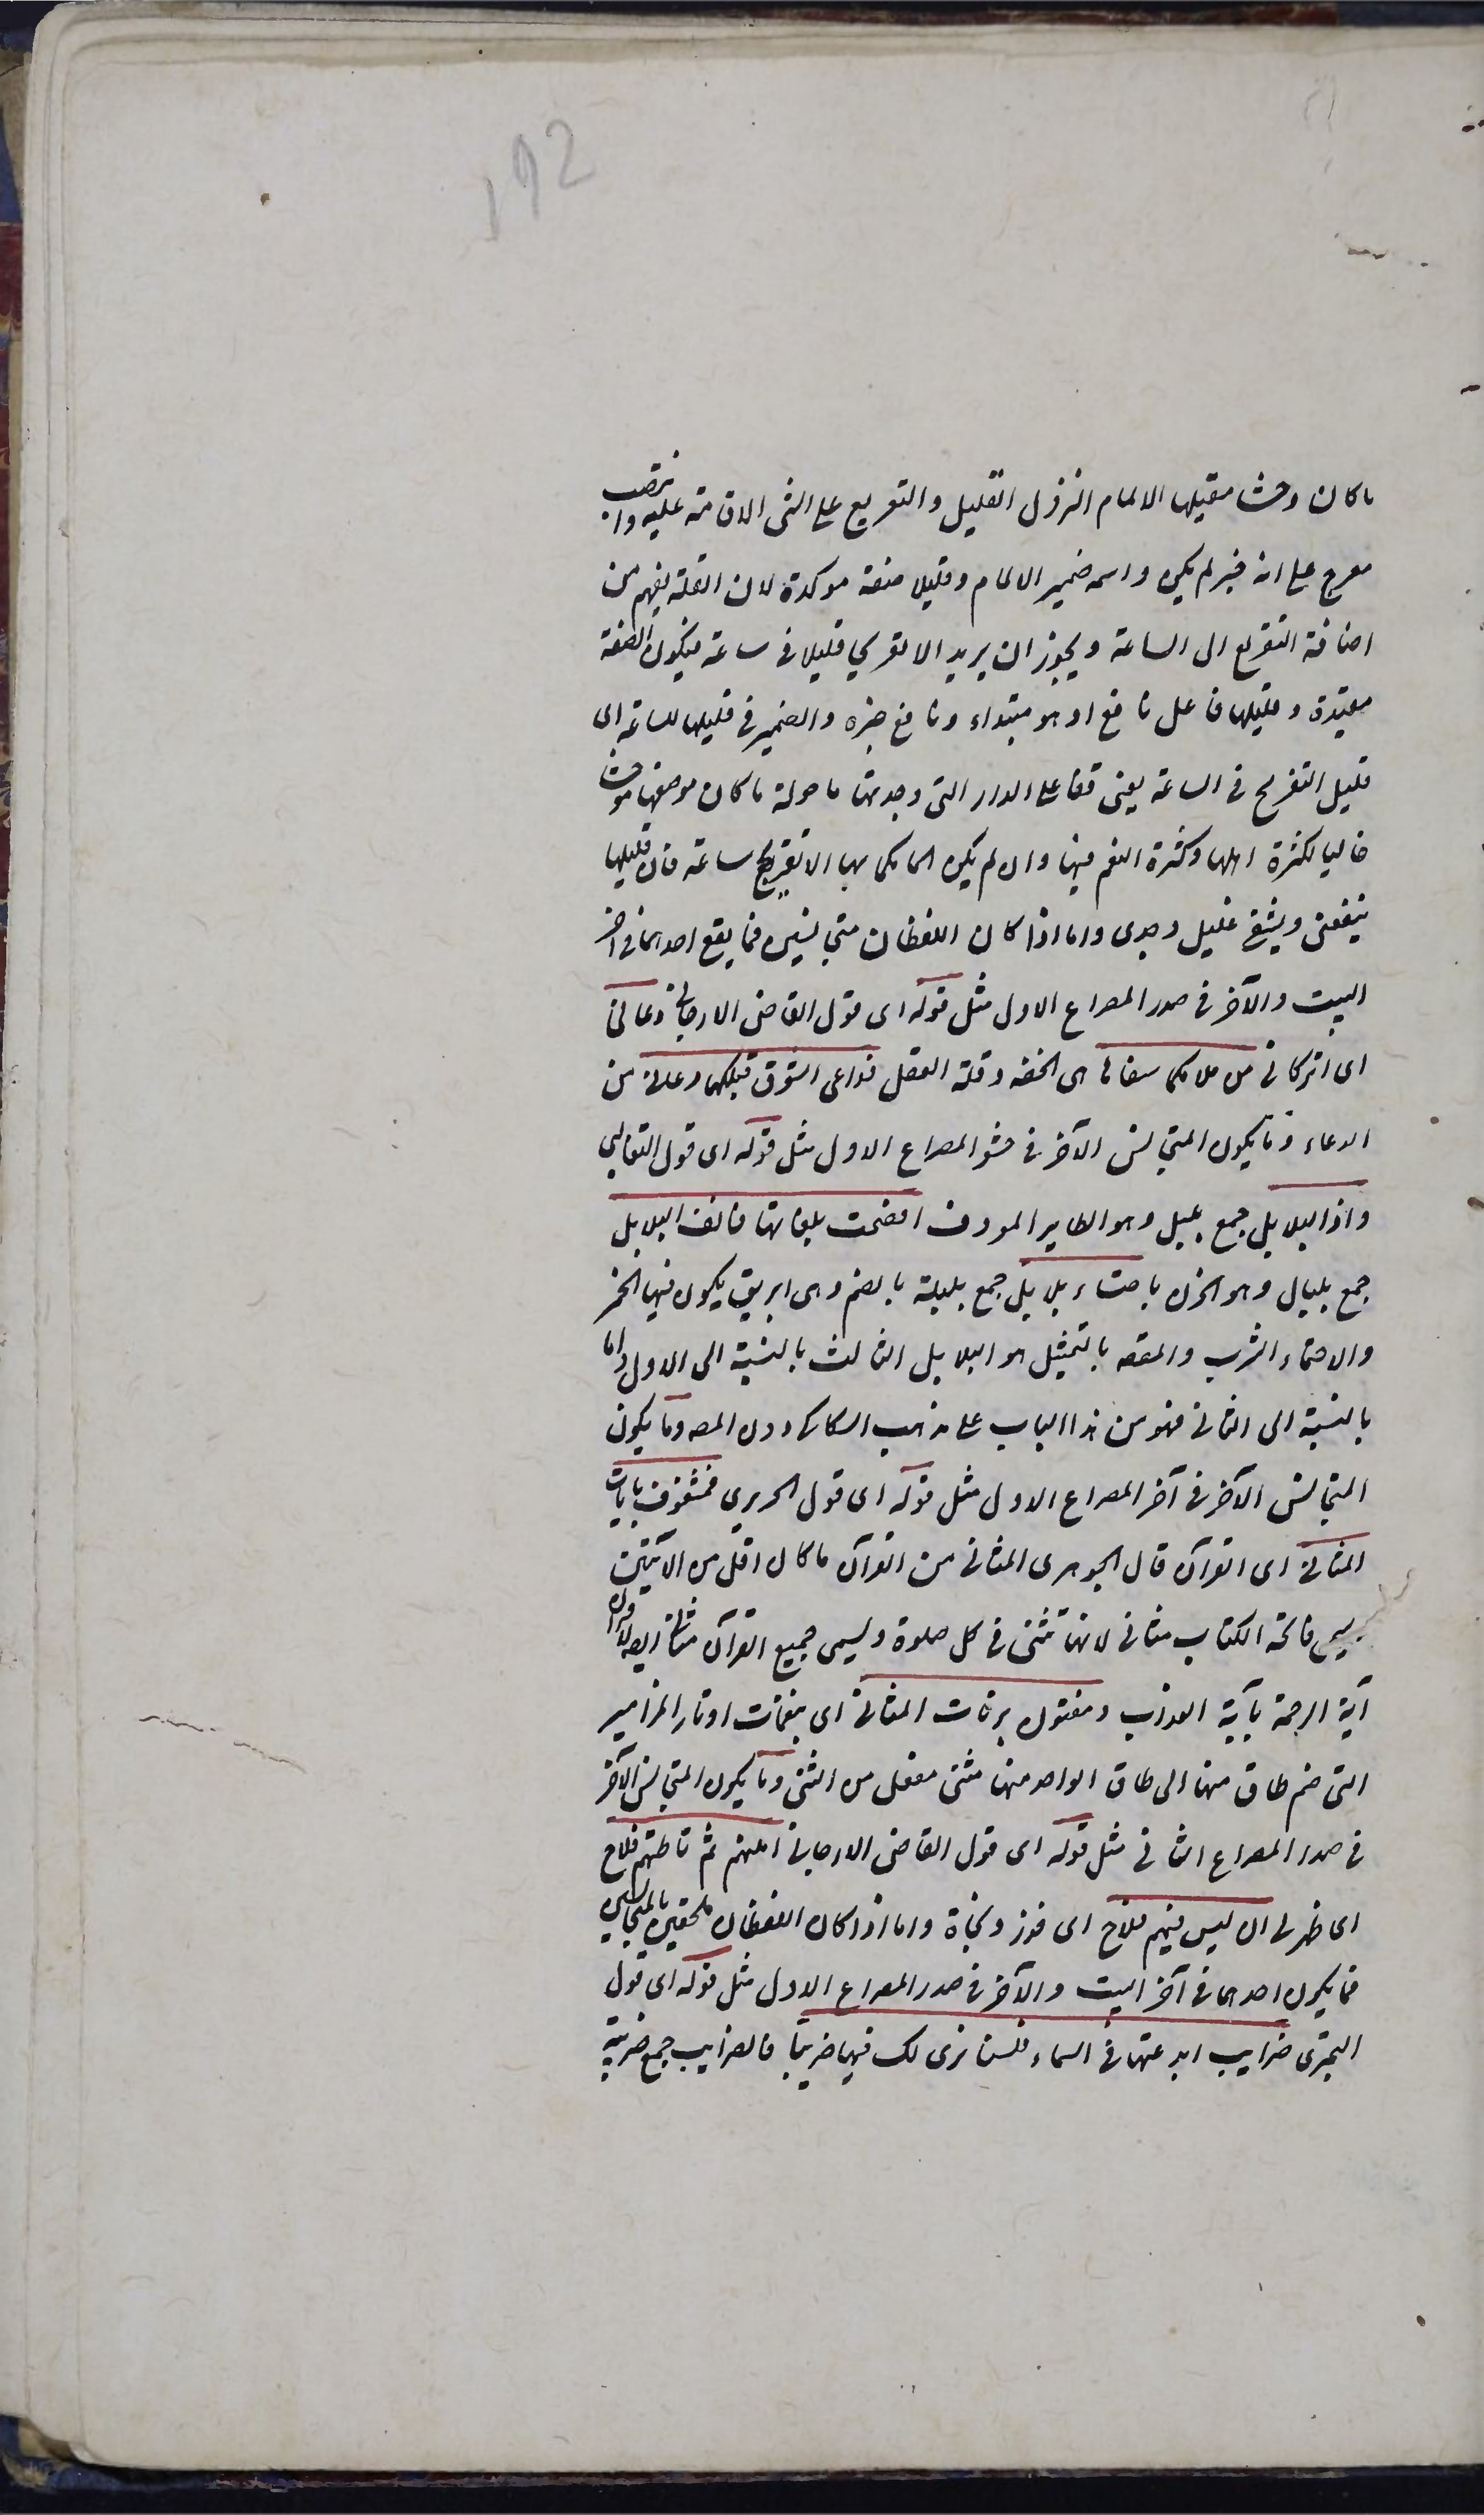 192
ما كان وحشا مقيلها الالمام النزول القليل والتعريج على الشئ الاقامة عليه وانتصب
معرج على انه خبر لم يكن واسمه ضمير الالمام وقليلا صفة موكدة لان القلة يفهم من
اضافة التعريج الى الساعة ويجوز ان يريد الا تعريجا قليلا فى ساعة فيكون الصفة
مقيدة وقليلها فاعل نافع او هو مبتداء ونافع خبره والضمير فى قليلها للساعة اى
قليل التعريج فى الساعة يعنى قفا على الدار التى وجدتها ماهولة ما كان موضعها موحشا
خاليا لكثرة اهلها وكثرة النعم فيها وان لم يكن المامكما بها الا تعريج ساعة فان قليلها
ينفعنى ويشفى غليل وجدى واما اذا كان اللفظان متجانسين فما يقع احدهما فى آخر
البيت والآخر فى صدر المصراع الاول مثل قوله اى قول القاضى الارجانى دعانى
اى اتركانى من ملامكما سفاها هى الخفة وقلة العقل فداعى الشوق قبلكما دعانى من
الدعاء وما يكون المتجانس الآخر فى حشو المصراع الاول مثل قوله اى قول الثعالبى
واذا البلابل جمع بلبل وهو الطاير المعروف افصحت بلغاتها فانف البلابل
جمع بلبال وهو الحزن باحتساء بلابل جمع بلبلة بالضم وهى ابريق يكون فيها الخمر
والاحتساء الشرب والمقصد بالتمثيل هو البلابل الثالث بالنسبة الى الاول واما
بالنسبة الى الثانى فهو من هذا الباب على مذهب السكاكى دون المصـ وما يكون
المتجانس الآخر فى آخر المصراع الاول مثل قوله اى قول الحريرى فمشغوف بآيات
المثانى اى القرآن قال الجوهرى المثانى من القرآن ما كان اقل من الآيتين
ويسمى فاتحة الكتاب مثانى لانها تثنى فى كل صلوة ويسمى جميع القرآن مثانى ايضا لاقتران
آية الرحمة بآية العذاب ومفتون برنات المثانى اى بنغمات اوتار المزامير
التى ضم طاق منها الى طاق الواحد منها مثنى مفعل من الثنى وما يكون المتجانس الآخر
فى صدر المصراع الثانى مثل قوله اى قول القاضى الارجانى املتهم ثم تاملتهم فلاح
اى ظهر لى ان ليس فيهم فلاح اى فوز ونجاة واما اذا كان اللفظان ملحقين بالمتجانسين
فما يكون احدهما فى آخر البيت والآخر فى صدر المصراع الاول مثل قوله اى قول
البحترى ضرايب ابدعتها فى السماء فلسنا نرى لك فيها ضريبا فالضرايب جمع ضريبة